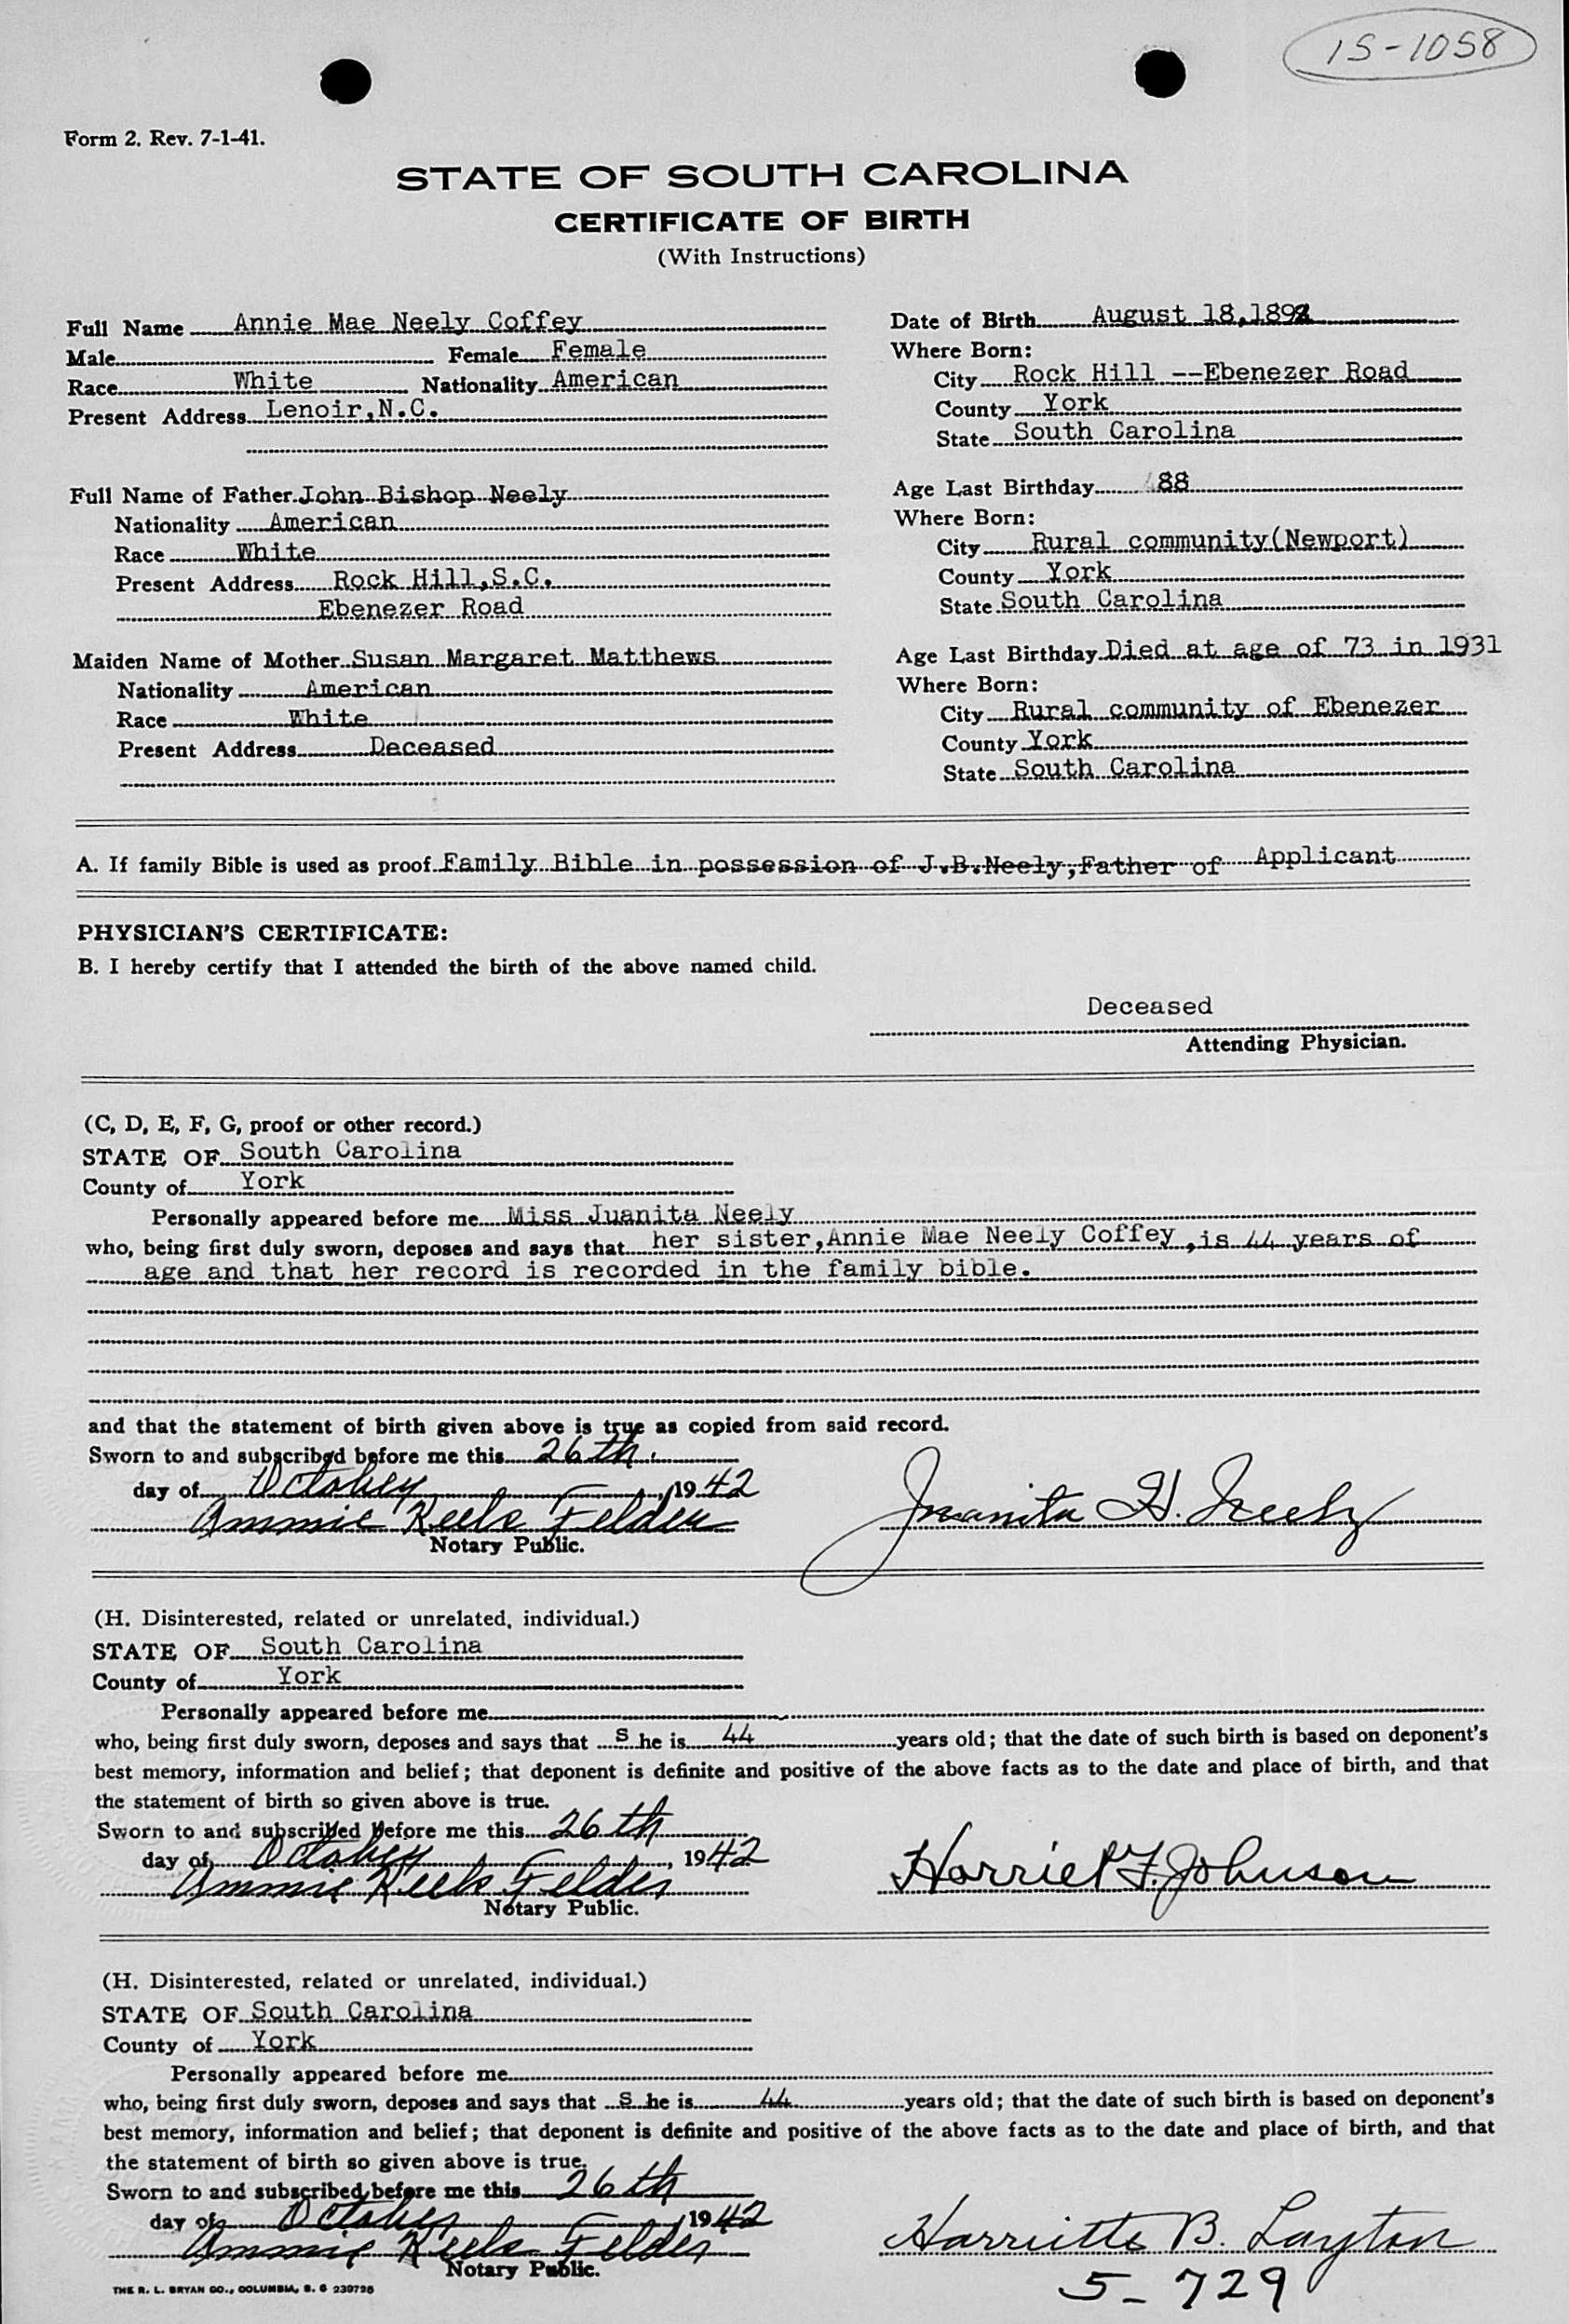 15-1058
Form 2. Rev. 7-1-41.
STATE OF SOUTH CAROLINA
CERTIFICATE OF BIRTH
(With Instructions)
Full Name Annie Mae Neely Coffey Date of Birth August 18,189
Male Female Female Where Born:
Race White Nationality American City Rock Hill --Ebenezer Road
Present Address Lenoir,N.C. County York
State South Carolina
Full Name of Father John Bishop Neely Age Last Birthday 88
Nationality American Where Born:
Race White City Rural community(Newport)
Present Address Rock Hill,S.C. County York
Ebenezer Road State South Carolina
Maiden Name of Mother Susan Margaret Matthews Age Last Birthday Died at age of 73 in 1931
Nationality American Where Born:
Race White City Rural community of Ebenezer
Present Address Deceased County York
State South Carolina
A. If family Bible is used as proof Family Bible in possession of J.B.Neely,Father of Applicant
PHYSICIAN'S CERTIFICATE:
B. I hereby certify that I attended the birth of the above named child.
Deceased
Attending Physician.
(C, D, E, F, G, proof or other record.)
STATE OF South Carolina
County of York
Personally appeared before me Miss Juanita Neely
who, being first duly sworn, deposes and says that her sister,Annie Mae Neely Coffey,is 44 years of
age and that her record is recorded in the family bible.
and that the statement of birth given above is true as copied from said record.
Sworn to and subscribed before me this 26th.
day of October, 1942
Ammie Keels Felder Juanita H. Neely
Notary Public.
(H. Disinterested, related or unrelated, individual.)
STATE OF South Carolina
County of York
Personally appeared before me
who, being first duly sworn, deposes and says that S he is 44 years old; that the date of such birth is based on deponent's
best memory, information and belief; that deponent is definite and positive of the above facts as to the date and place of birth, and that
the statement of birth so given above is true.
Sworn to and subscribed before me this 26th
day of October, 1942
Ammie Keels Felder Harriet F. Johnson
Notary Public.
(H. Disinterested, related or unrelated, individual.)
STATE OF South Carolina
County of York
Personally appeared before me
who, being first duly sworn, deposes and says that S he is 44 years old; that the date of such birth is based on deponent's
best memory, information and belief; that deponent is definite and positive of the above facts as to the date and place of birth, and that
the statement of birth so given above is true.
Sworn to and subscribed before me this 26th
day of October, 1942
Ammie Keels Felder Harriette B. Layton
Notary Public.
THE R. L. BRYAN CO., COLUMBIA, S. C 239728
5-729